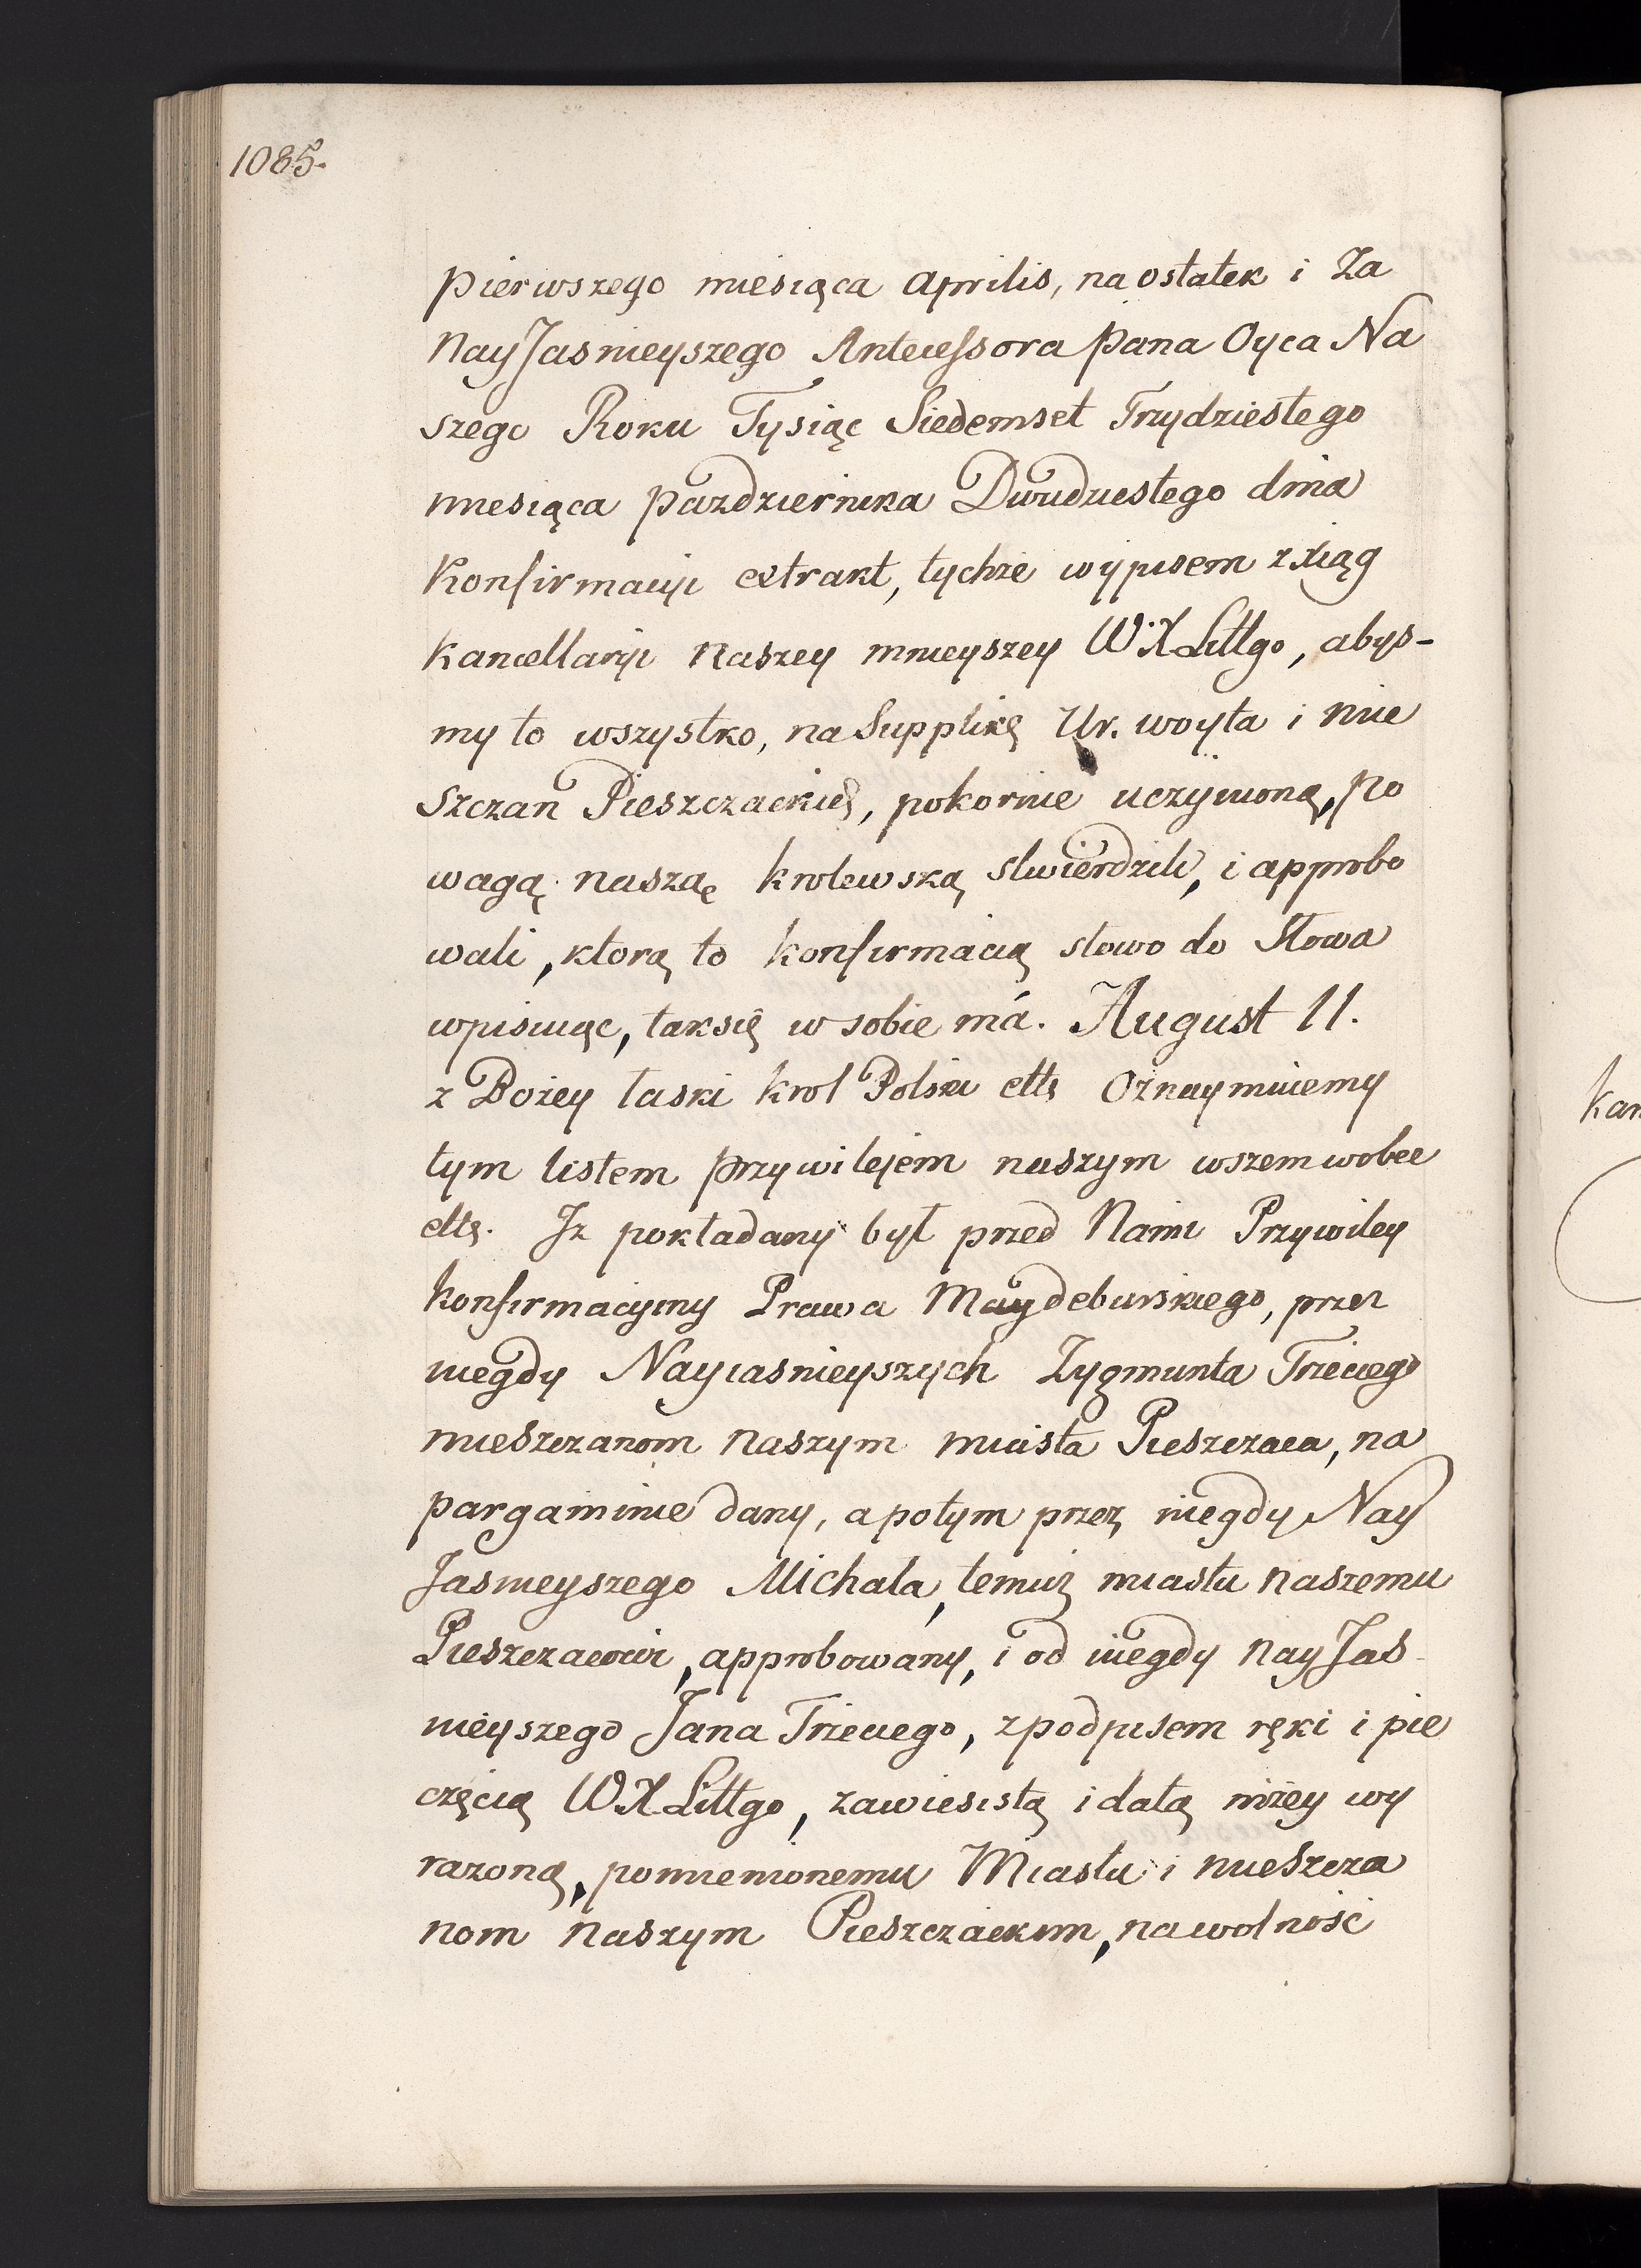 1085.
pierwszego miesiąca Aprilis, na ostatek i Za
NayJasnieyszego Antecessora Pana Oyca Na
szego Roku Tysiąc Siedemset Trzydziestego
miesiąca pazdziernika Dwudziestego dnia
Konfirmacyi extrakt, tychże wypisem z xiąg
Kancellaryi Naszey mnieyszey W.X.Littgo, abys-
my to wszystko, na Supplikę Ur. woyta i mie
szczan Pieszczackich, pokornie uczynioną, po
wagą naszą krolewską stwierdzili, i approbo
wali, ktorą to konfirmacią słowo do Słowa
wpisuiąc, taksię w sobie má. August II.
z Bożey łaski krol Polski etts Oznaymuiemy
tym listem przywilejem naszym wszem wobec
etts. Iz pokładany był przed Nami Przywiley
konfirmacyiny Prawa Maydeburskiego, przez
niegdy Nayiasnieyszych Zygmunta Trzeciego
mieszczanom Naszym miasta Pieszczaca, na
pargaminie dany, a potym przez niegdy Nay
Jasnieyszego Michala, temuż miastu Naszemu
Pieszczacowi, approbowany, i od niegdy NayJas
nieyszego Jana Trzeciego, z podpisem ręki i pie
częcią W.X.Littgo, zawiesistą i datą niżey wy
razoną, pomienionemu Miastu i mieszcza
nom Naszym Pieszczackim, na wolność
kan